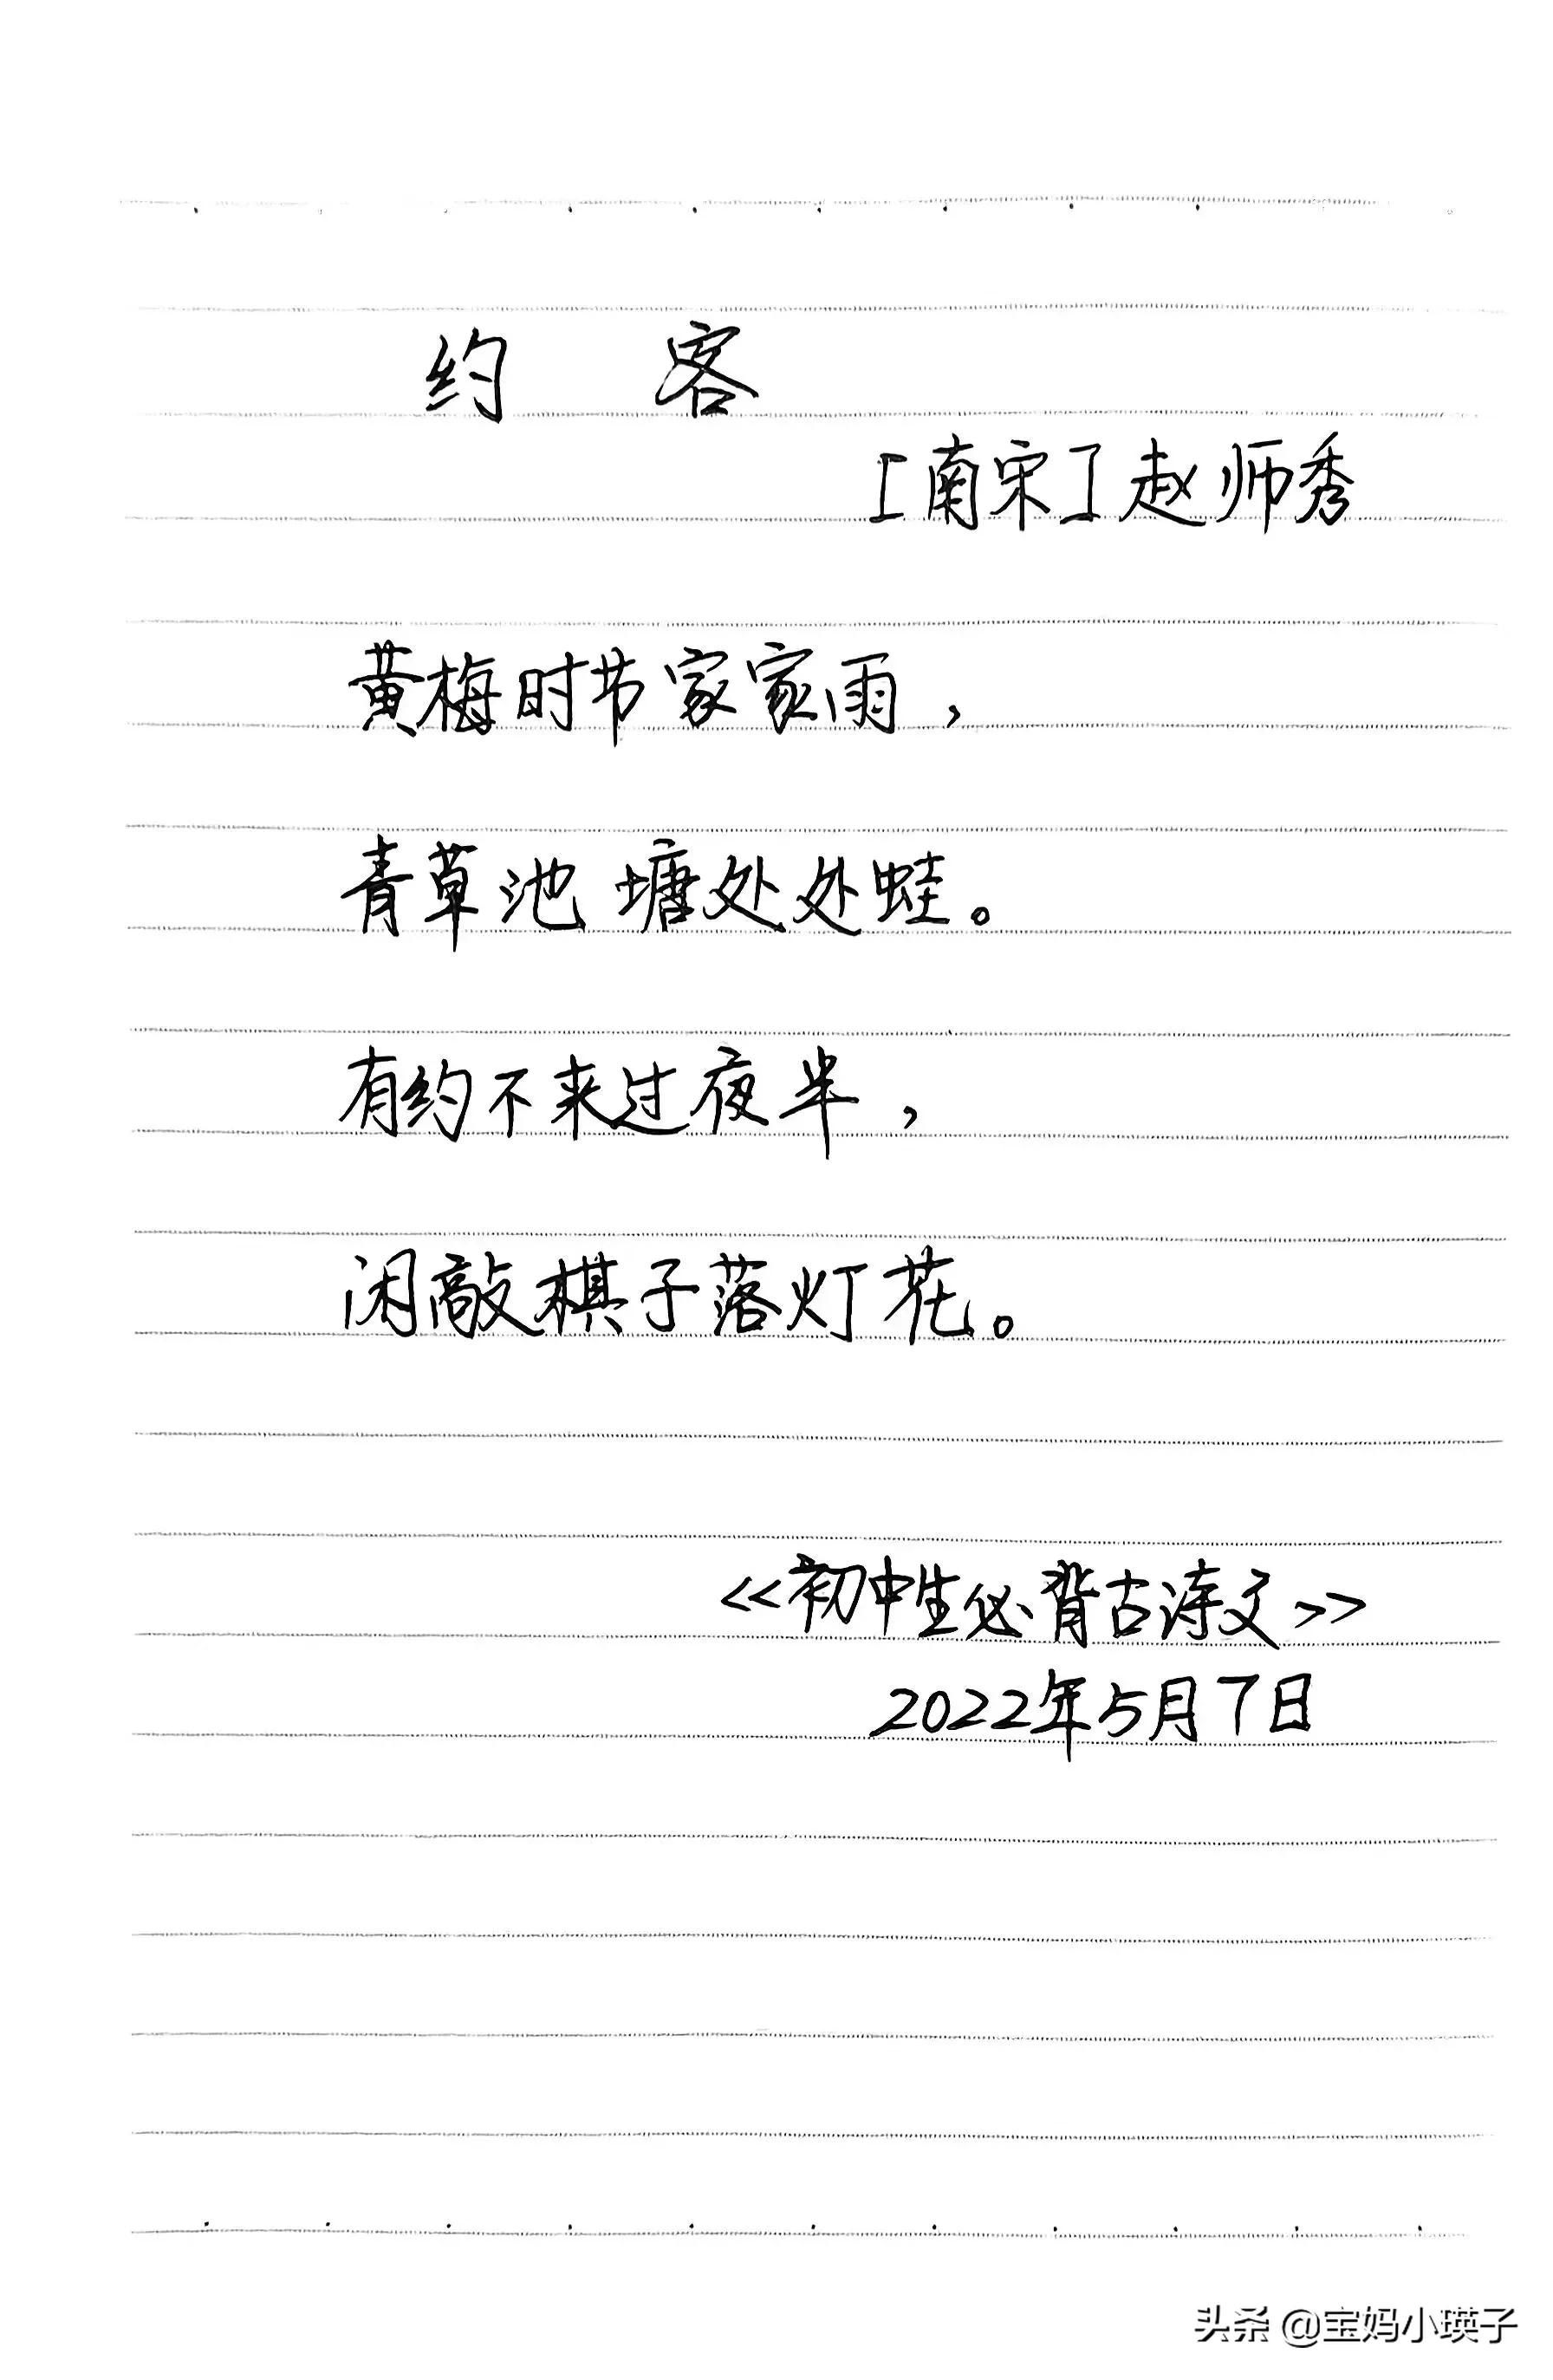 约 客
[南宋]赵师秀
黄梅时节家家雨，
青草池塘处处蛙。
有约不来过夜半，
闲敲棋子落灯花。
<<初中生必背古诗文>>
2022年5月7日
头条 @宝妈小瑛子